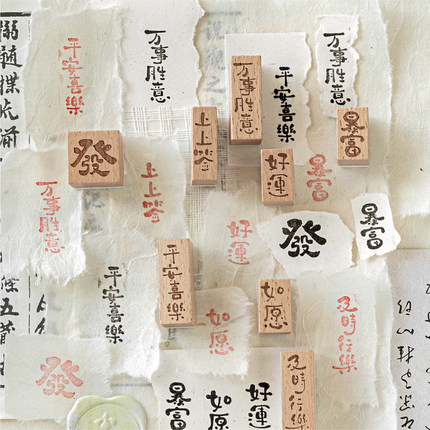 平安喜樂
万事胜意
万事胜意
平安喜樂
万事胜意
暴富
發
上上签
好運
暴富
万事胜意
上上签
好運
發
暴富
平安喜樂
平安喜樂
如愿
如愿
及時行樂
發
暴富
如愿
好運
及時行樂